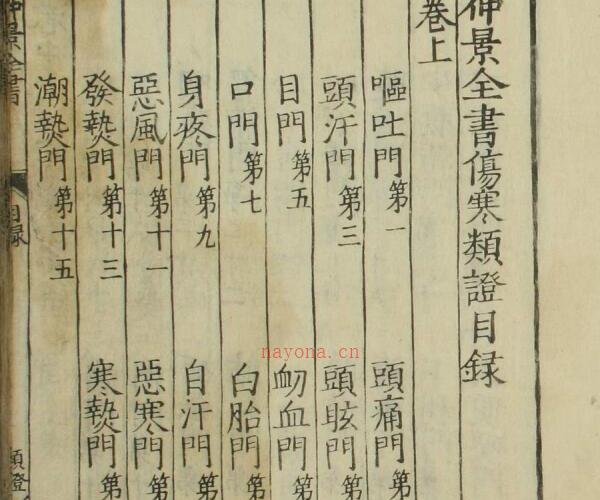 仲景全書傷寒類證目録
卷上
嘔吐門第一 頭痛門第
頭汗門第三 頭眩門第
目門第五 衂血門第
口門第七 白胎門第
身疼門第九 自汗門第
惡風門第十一 惡寒門第
發熱門第十三 寒熱門第
潮熱門第十五
仲景全書 目録 類證
nayona.cn